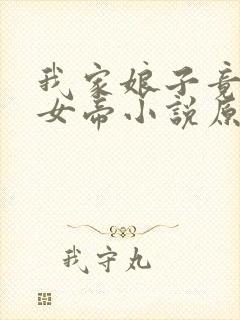 我家娘子竟
女帝小說原
我守丸